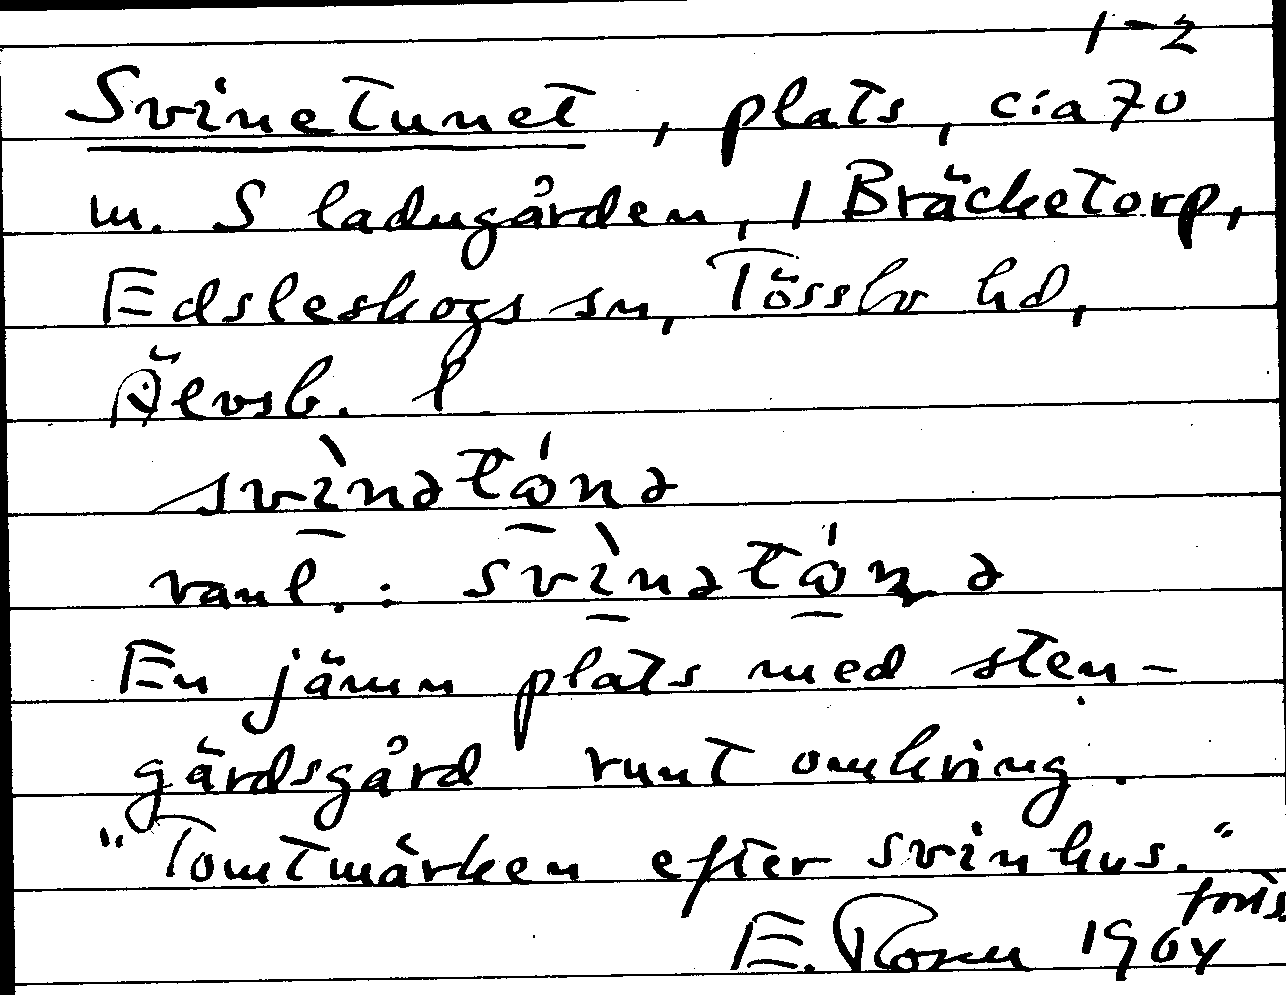 1-2
Svinetunet, plats, c:a 70
m. S ladugården, 1 Bräcketorp,
Edsleskogs sn, Tössbo hd,
Älvsb. l
svìnətǿnə
vanl.: svìnətǿnə
En jämn plats med sten-
gärdsgård runt omkring.
"Tomtmärken efter svinhus."
forts.
E. Rosen 1964